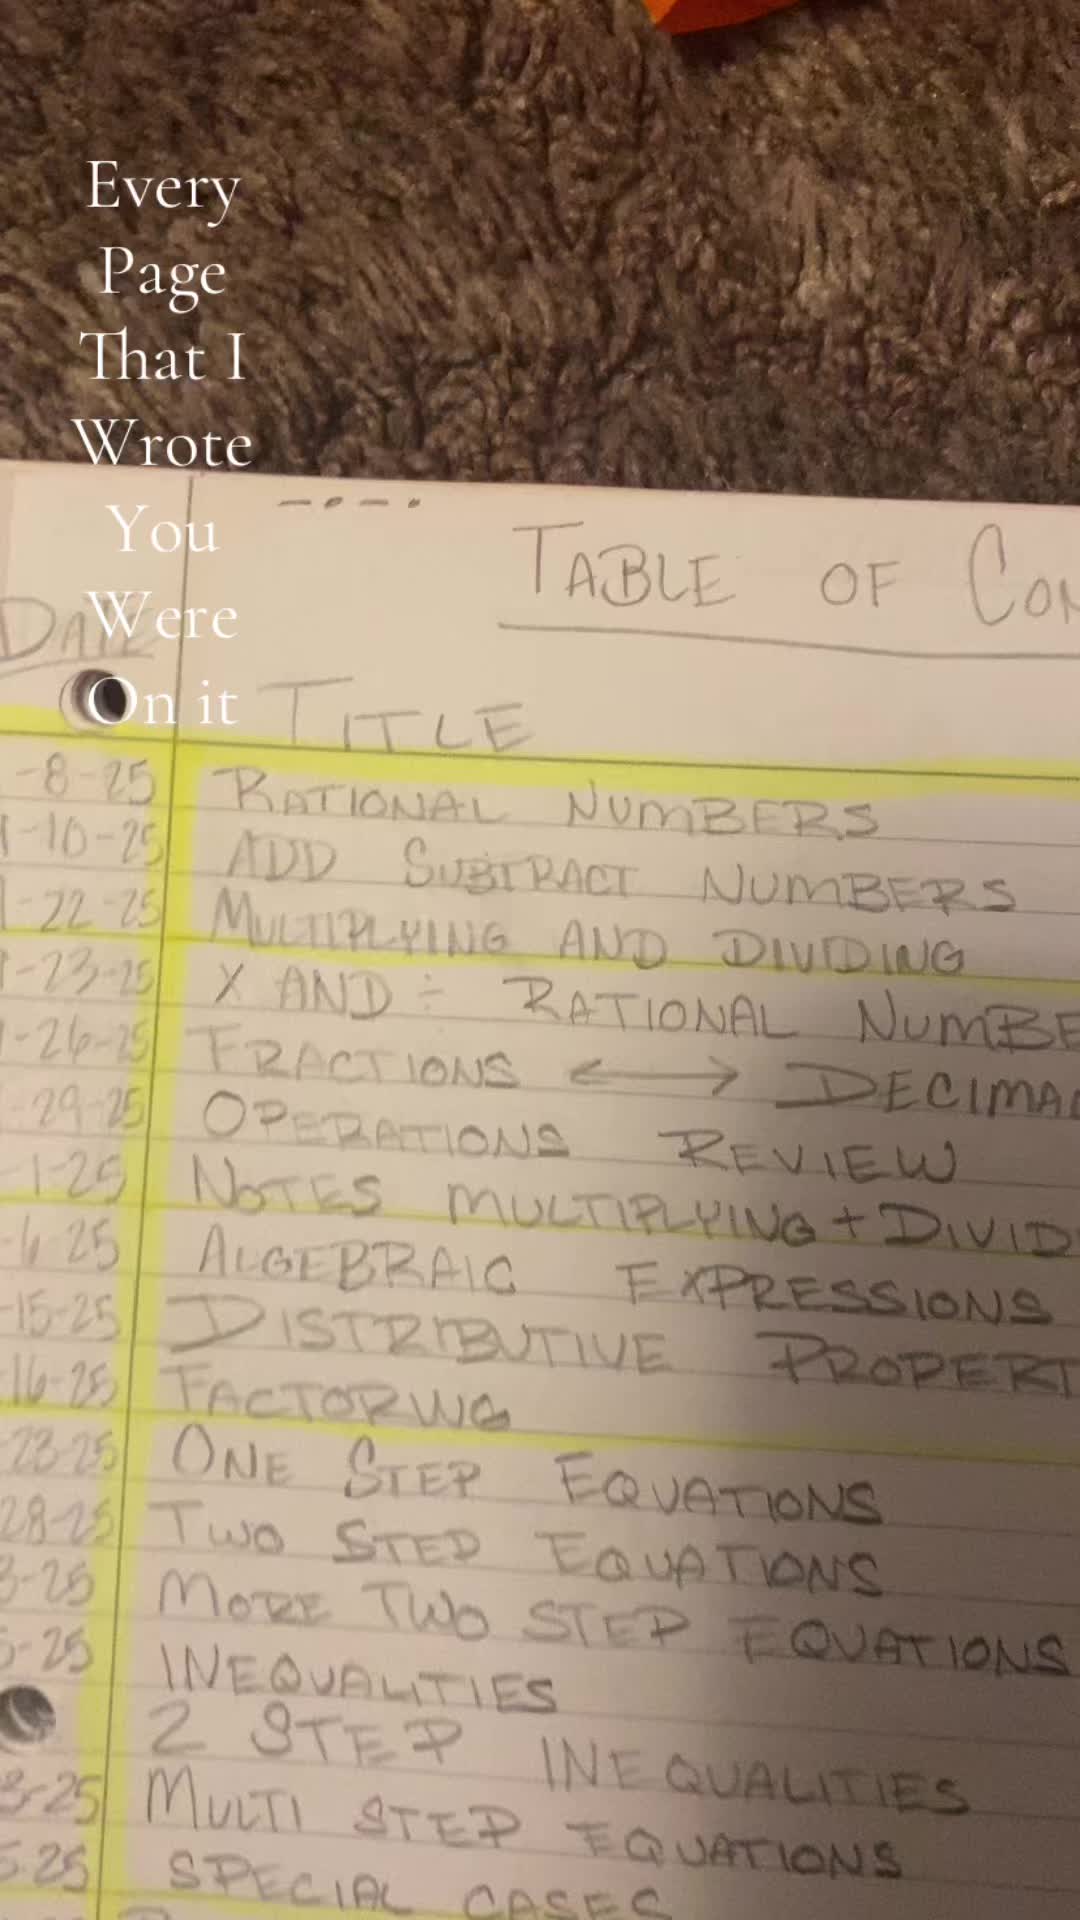 Every
Page
That I
Wrote
You
Were
On it
TABLE OF
DATE
TITLE
-8-25 RATIONAL NUMBERS
-10-25 ADD SUBTRACT NUMBERS
-22-25 MULTIPLYING AND DIVIDING
-23-25 X AND ÷ RATIONAL NUMBE
-26-25 FRACTIONS ⟷ DECIMA
-29-25 OPERATIONS REVIEW
-1-25 NOTES MULTIPLYING + DIVID
-6-25 ALGEBRAIC EXPRESSIONS
-15-25 DISTRIBUTIVE PROPERT
-16-25 FACTORING
-23-25 ONE STEP EQUATIONS
28-25 TWO STEP EQUATIONS
3-25 MORE TWO STEP EQUATIONS
5-25 INEQUALITIES
2 STEP INEQUALITIES
3-25 MULTI STEP EQUATIONS
5-25 SPECIAL CASES